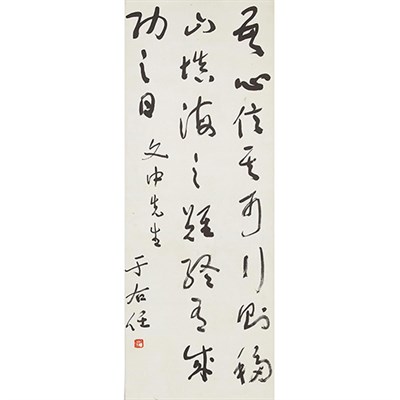 吾心信其可行则移
山填海之难终有成
功之日
文中先生
于右任